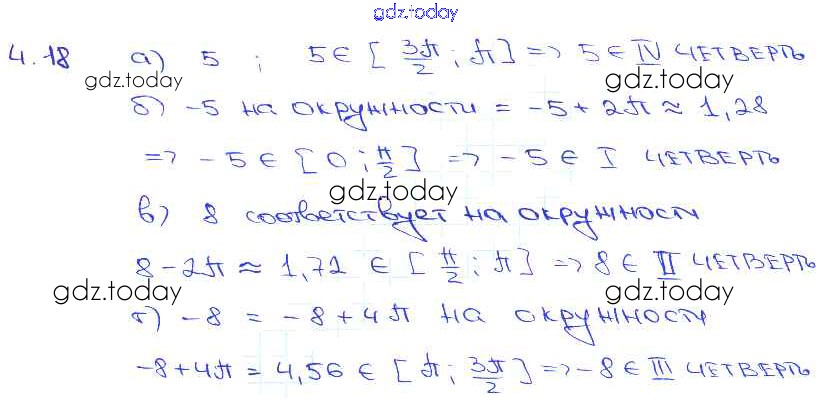 gdz.today
4.18 а) 5 ; 5 ∈ [3π/2 ; π] => 5 ∈ IV ЧЕТВЕРТЬ
gdz.today gdz.today
б) -5 на окружности = -5 + 2π ≈ 1,28
=> -5 ∈ [0 ; π/2] => -5 ∈ I ЧЕТВЕРТЬ
gdz.today
в) 8 соответствует на окружности
8 - 2π ≈ 1,72 ∈ [π/2 ; π] => 8 ∈ II ЧЕТВЕРТЬ
gdz.today gdz.today
г) -8 = -8 + 4π на окружности
-8 + 4π = 4,56 ∈ [π ; 3π/2] => -8 ∈ III ЧЕТВЕРТЬ